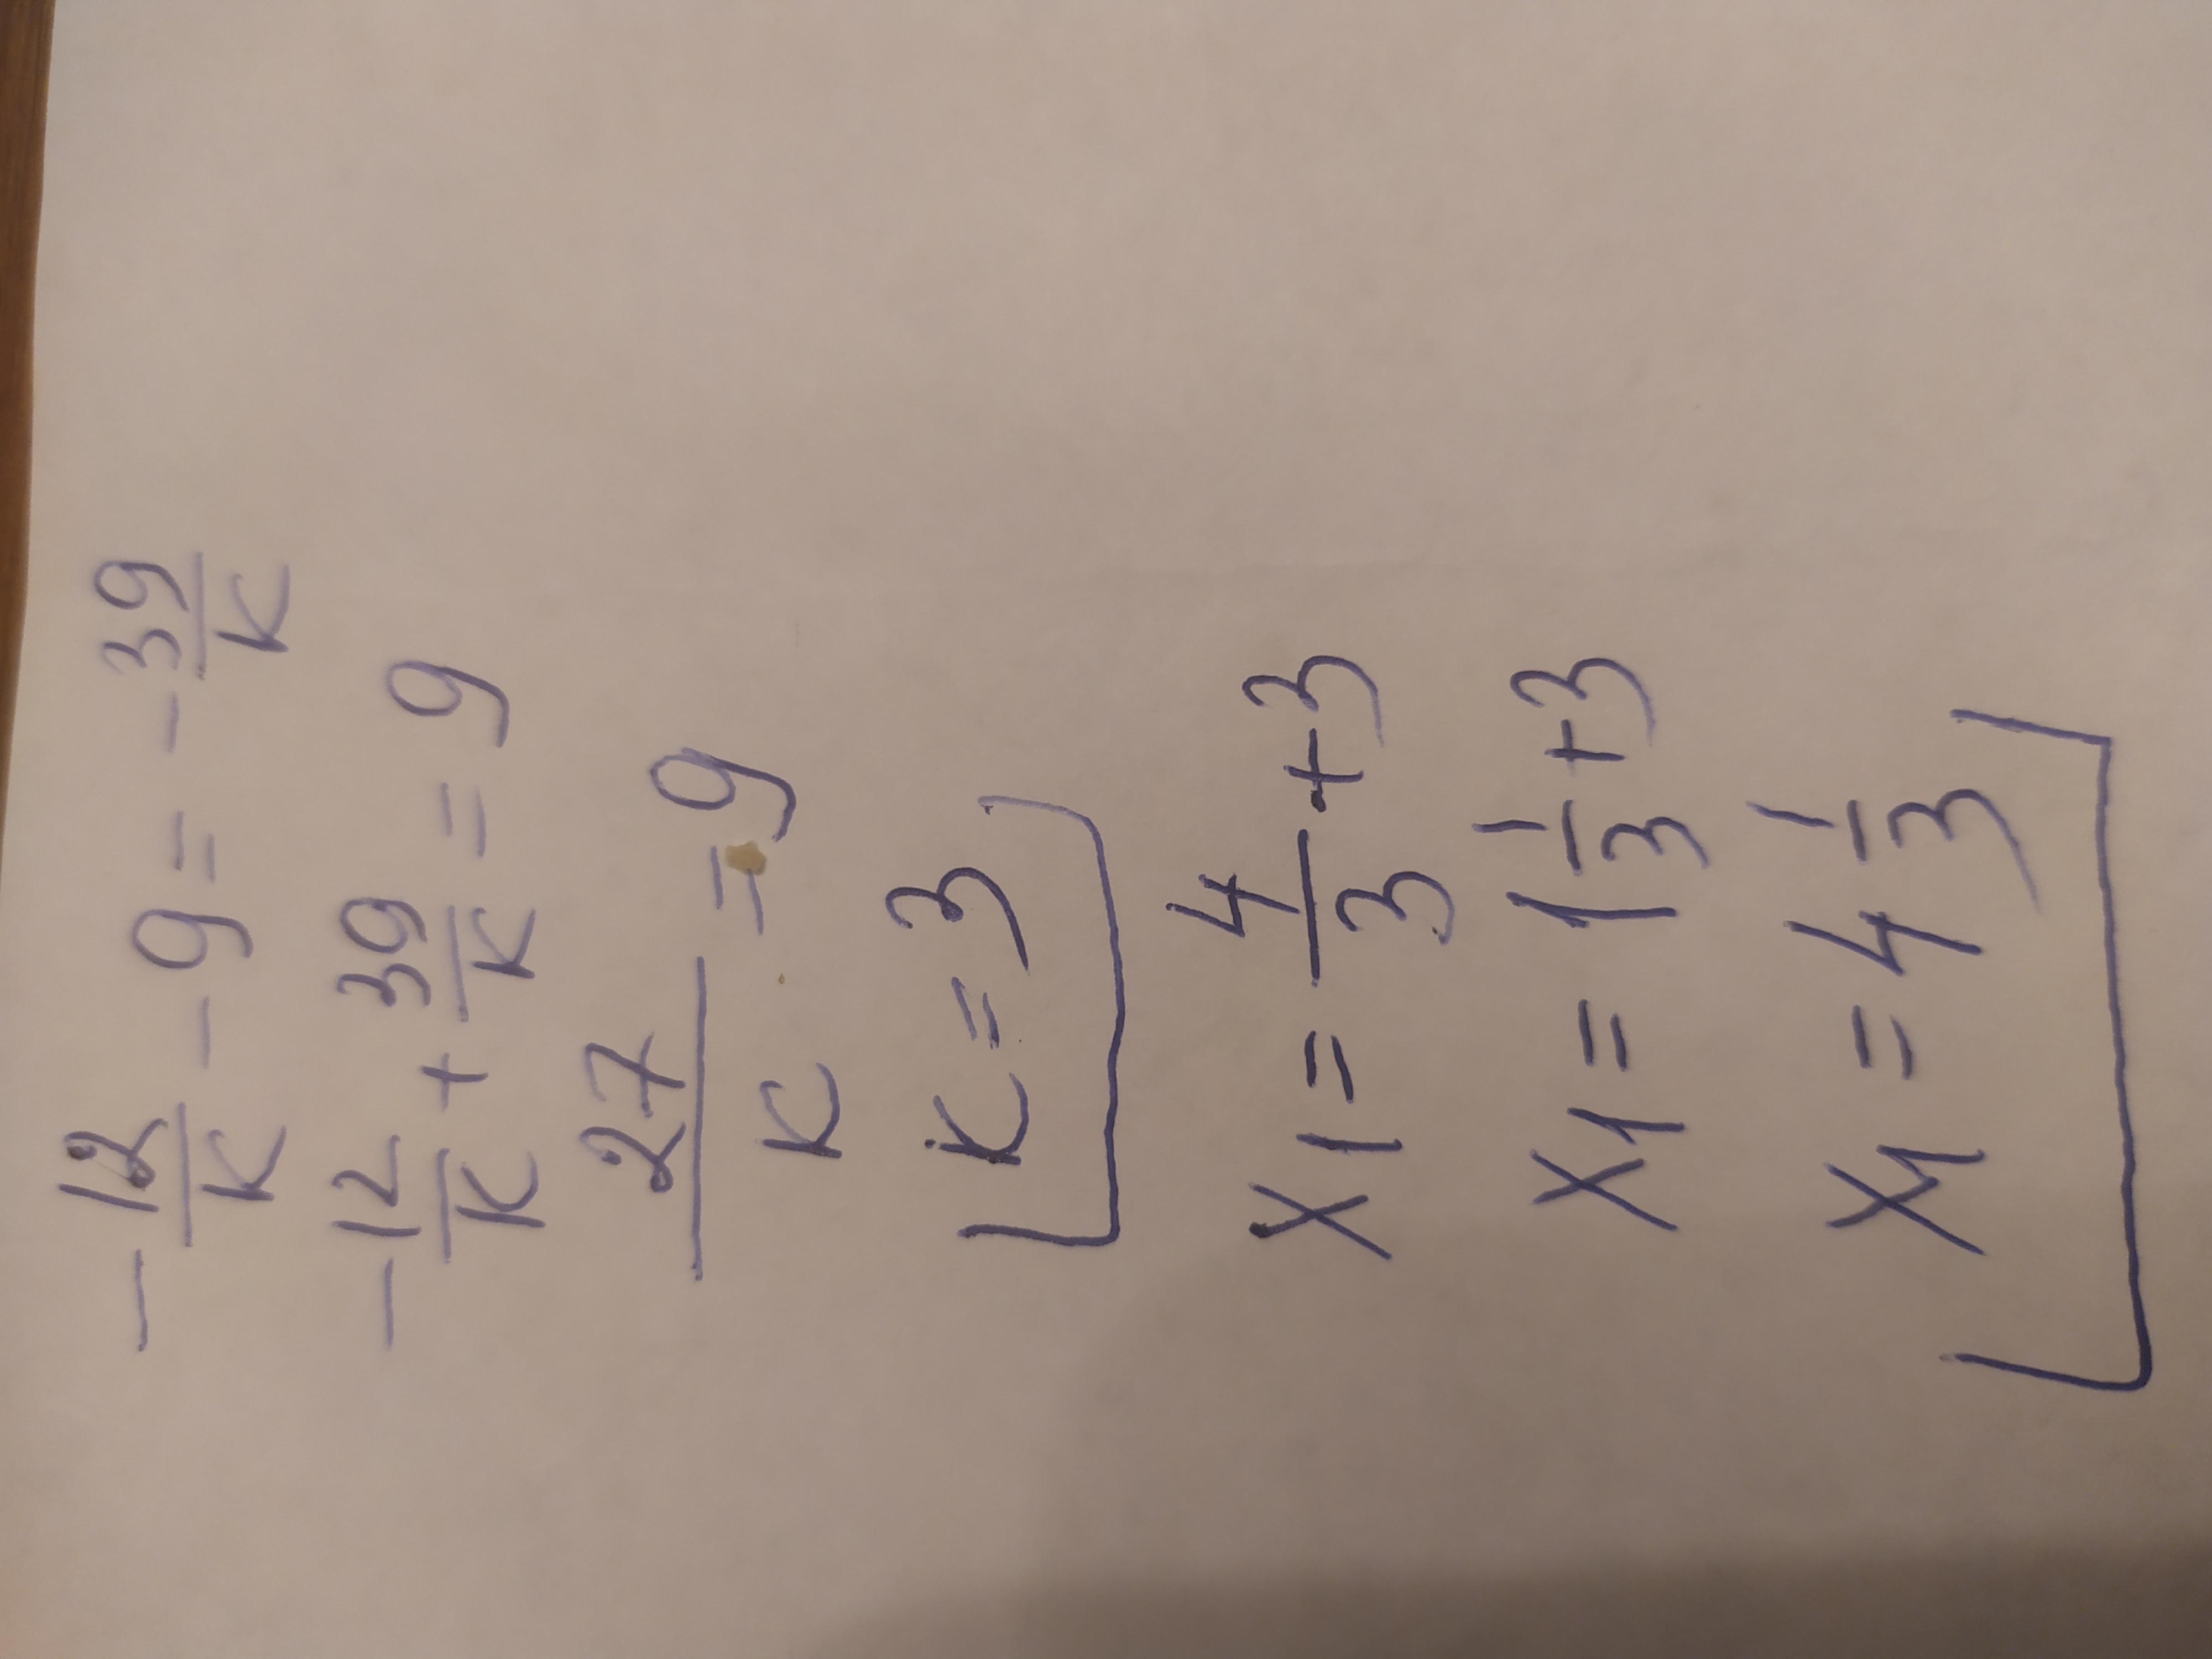 - 12/K - 9 = - 39/K
- 12/K + 39/K = 9
27/K = 9
K = 3
X1 = 4/3 + 3
X1 = 1 1/3 + 3
X1 = 4 1/3